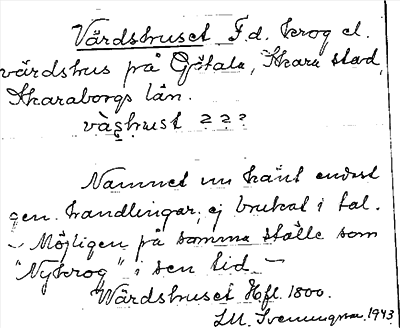 Värdshuset F.d. krog el.
värdshus på Götala, Skara stad,
Skaraborgs län.
väs̱hust ???
Namnet nu känt endast
gen. handlingar, ej brukat i tal.
– Möjligen på samma ställe som
"Nykrog" i sen tid –
Wärdshuset Hfl. 1800.
I.M. Svennungsson 1943